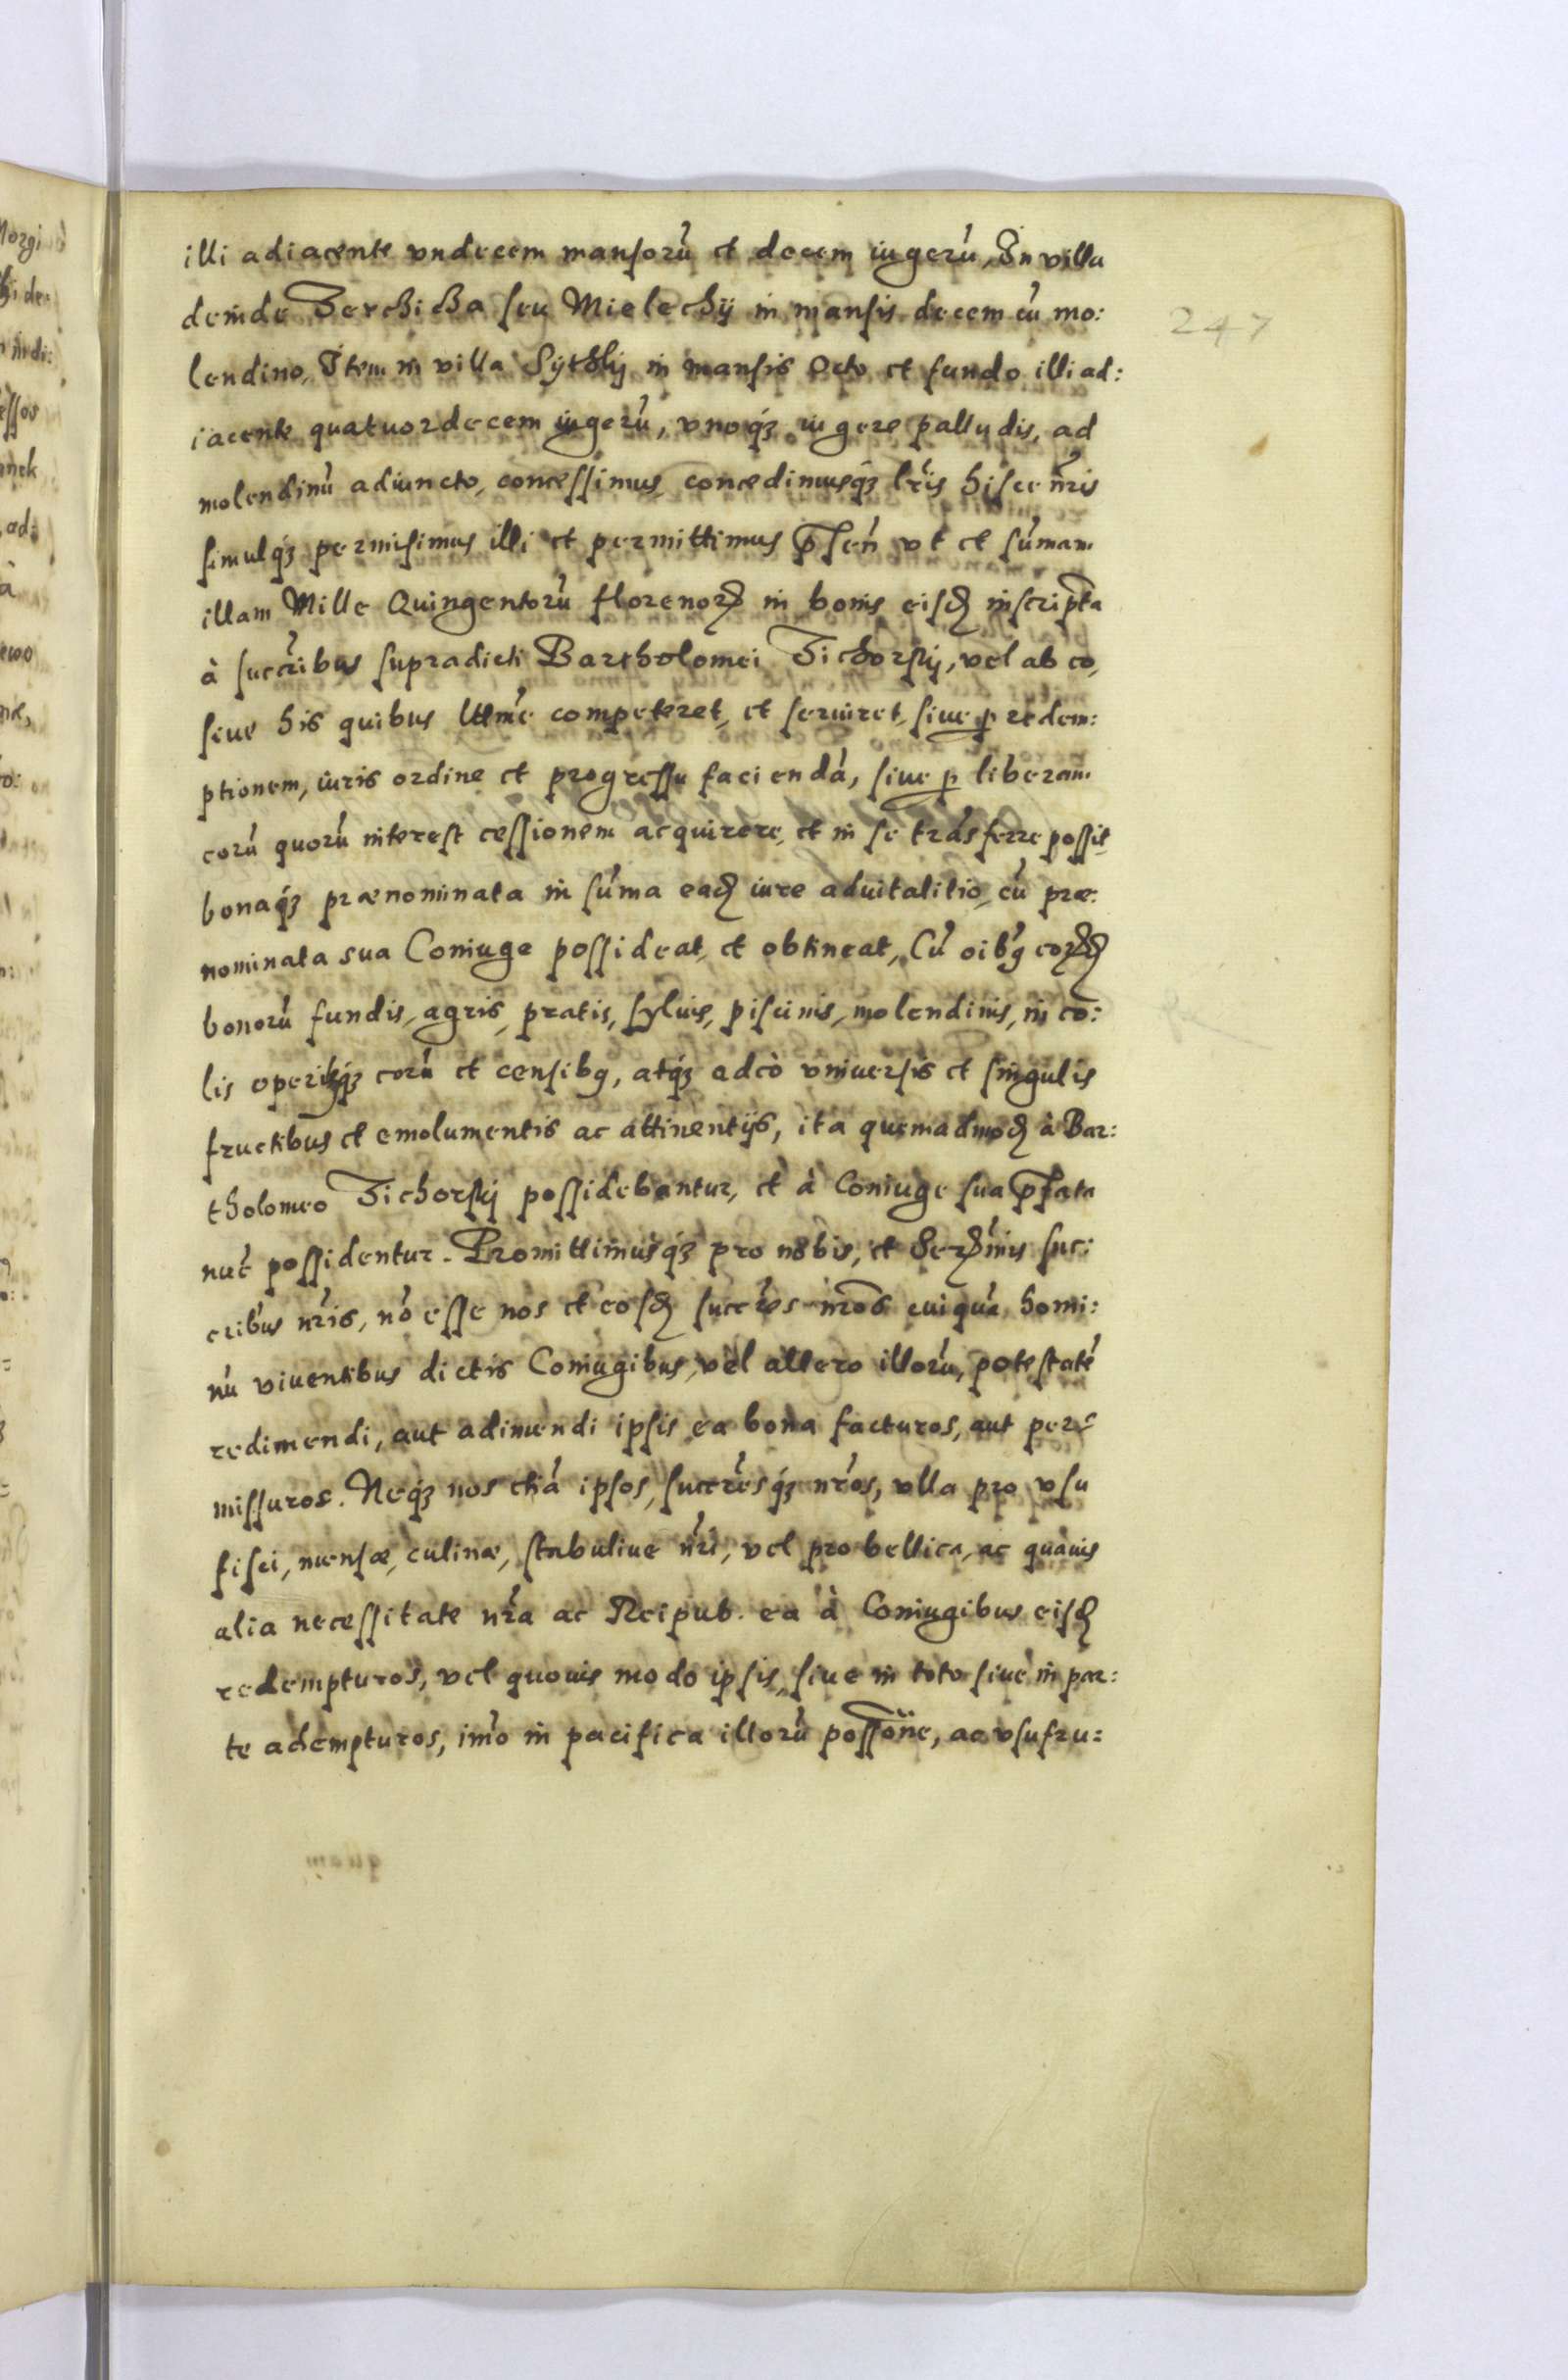 illi adiacente vndecem mansorũ et decem iugerũ, In villa
deinde Zerchicha seu Mielechÿ in mansis decem cũ mo:
247
lendino, Item in villa Sÿthkÿ in mansis Octo et fundo illi ad:
iacente quatuordecem iugerũ, vnoqʒ iugere palludis, ad
molendinũ adiuncto, concessimus, concedimusqʒ lr̃is hisce nr̃is
simulqʒ permisimus illi et permittimus p̃sen̄ vt et sum̃am
illam Mille Quingentorũ florenorꝝ in bonis eisd inscripta
à succr̃ibus supradicti Bartholomei Zichorskÿ, vel ab eo,
siue his quibus lttm̃e competeret, et seruiret, siue ꝑ redem:
ptionem, iuris ordine et progressu faciendã, siue ꝑ liberam
eorũ quorũ interest cessionem acquirere, et in se trãsferre possit,
bonaqʒ prænominata in sum̃a ead iure aduitalitio, cũ præ:
nominata sua Coniuge possideat, et obtineat, Cũ oĩbꝰ eorꝝd
bonorũ fundis, agris, pratis, syluis, piscinis, molendinis, inco:
lis operibꝰqʒ eorũ et censibꝰ, atqʒ adeò vniuersis et singulis
fructibus et emolumentis ac attinentÿs, ita quemadmod à Bar:
tholomeo Zichorskÿ possidebantur, et à Coniuge sua p̃fata
nũc possidentur. Promittimusqʒ pro nobis, et Serꝰmis suc:
cribus nr̃is, nõ esse nos et eosd succr̃es nr̃os cuiquã homi:
nũ viuentibus dictis Coniugibus, vel altero illorũ, potestatẽ
redimendi, aut adimendi ipsis ea bona facturos, aut per:
missuros. Neqʒ nos etiã ipsos, succr̃esqʒ nr̃os, vlla pro vsu
fisci, mensæ, culinæ, stabuliue nr̃i, vel pro bellica, ac quãuis
alia necessitate nr̃a ac Reipub. ea à Coniugibus eisd
redempturos, vel quouis modo ipsis, siue in toto siue in par:
te adempturos, im̃o in pacifica illorũ possõne, ac vsufru: